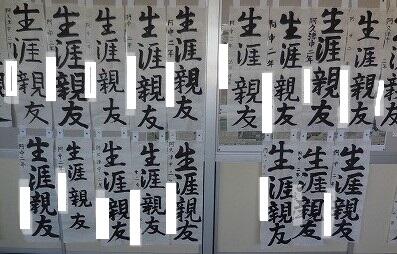 生涯親友
生涯親友
阿久津中二年
生涯親友
生涯親友
阿中二年
生涯親友
生涯親友
生涯親友
生涯親友
生涯親友
生涯親友
生涯親友
生涯親友
生涯親友
生涯親友
生涯親友
生涯親友
生涯親友
阿中二年